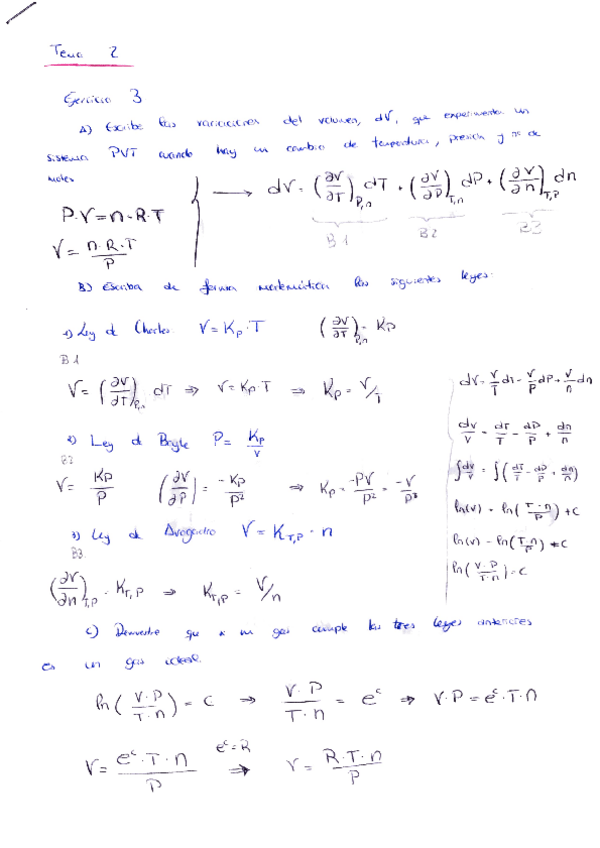 Tema 2
Ejercicio 3
A) Escribe las variaciones del volumen, dV, que experimenta un
sistema PVT cuando hay un cambio de temperatura, presión y nº de
moles
P·V=n·R·T
V = n·R·T/P
→ dV = (∂V/∂T)P,n dT + (∂V/∂P)T,n dP + (∂V/∂n)T,P dn
B1 B2 B3
B) Escriba de forma matemática las siguientes leyes:
1) Ley de Charles V = Kp·T (∂V/∂T)P,n = Kp
B1
V = (∂V/∂T)P,n dT ⇒ V = Kp·T ⇒ Kp = V/T
2) Ley de Boyle P = Kp/V
B2
V = Kp/P (∂V/∂P) = -Kp/P² ⇒ Kp = -PV/P² = -V/P
3) Ley de Avogadro V = KT,P · n
B3
(∂V/∂n)T,P = KT,P ⇒ KT,P = V/n
dV = V/T dT - V/P dP + V/n dn
dV/V = dT/T - dP/P + dn/n
∫dV/V = ∫(dT/T - dP/P + dn/n)
ln(V) = ln(T·n/P) + C
ln(V) - ln(T·n/P) = C
ln(V·P/T·n) = C
C) Demuestre que si un gas cumple las tres leyes anteriores
es un gas ideal.
ln(V·P/T·n) = C ⇒ V·P/T·n = e^c ⇒ V·P = e^c·T·n
V = e^c·T·n/P e^c=R ⇒ V = R·T·n/P